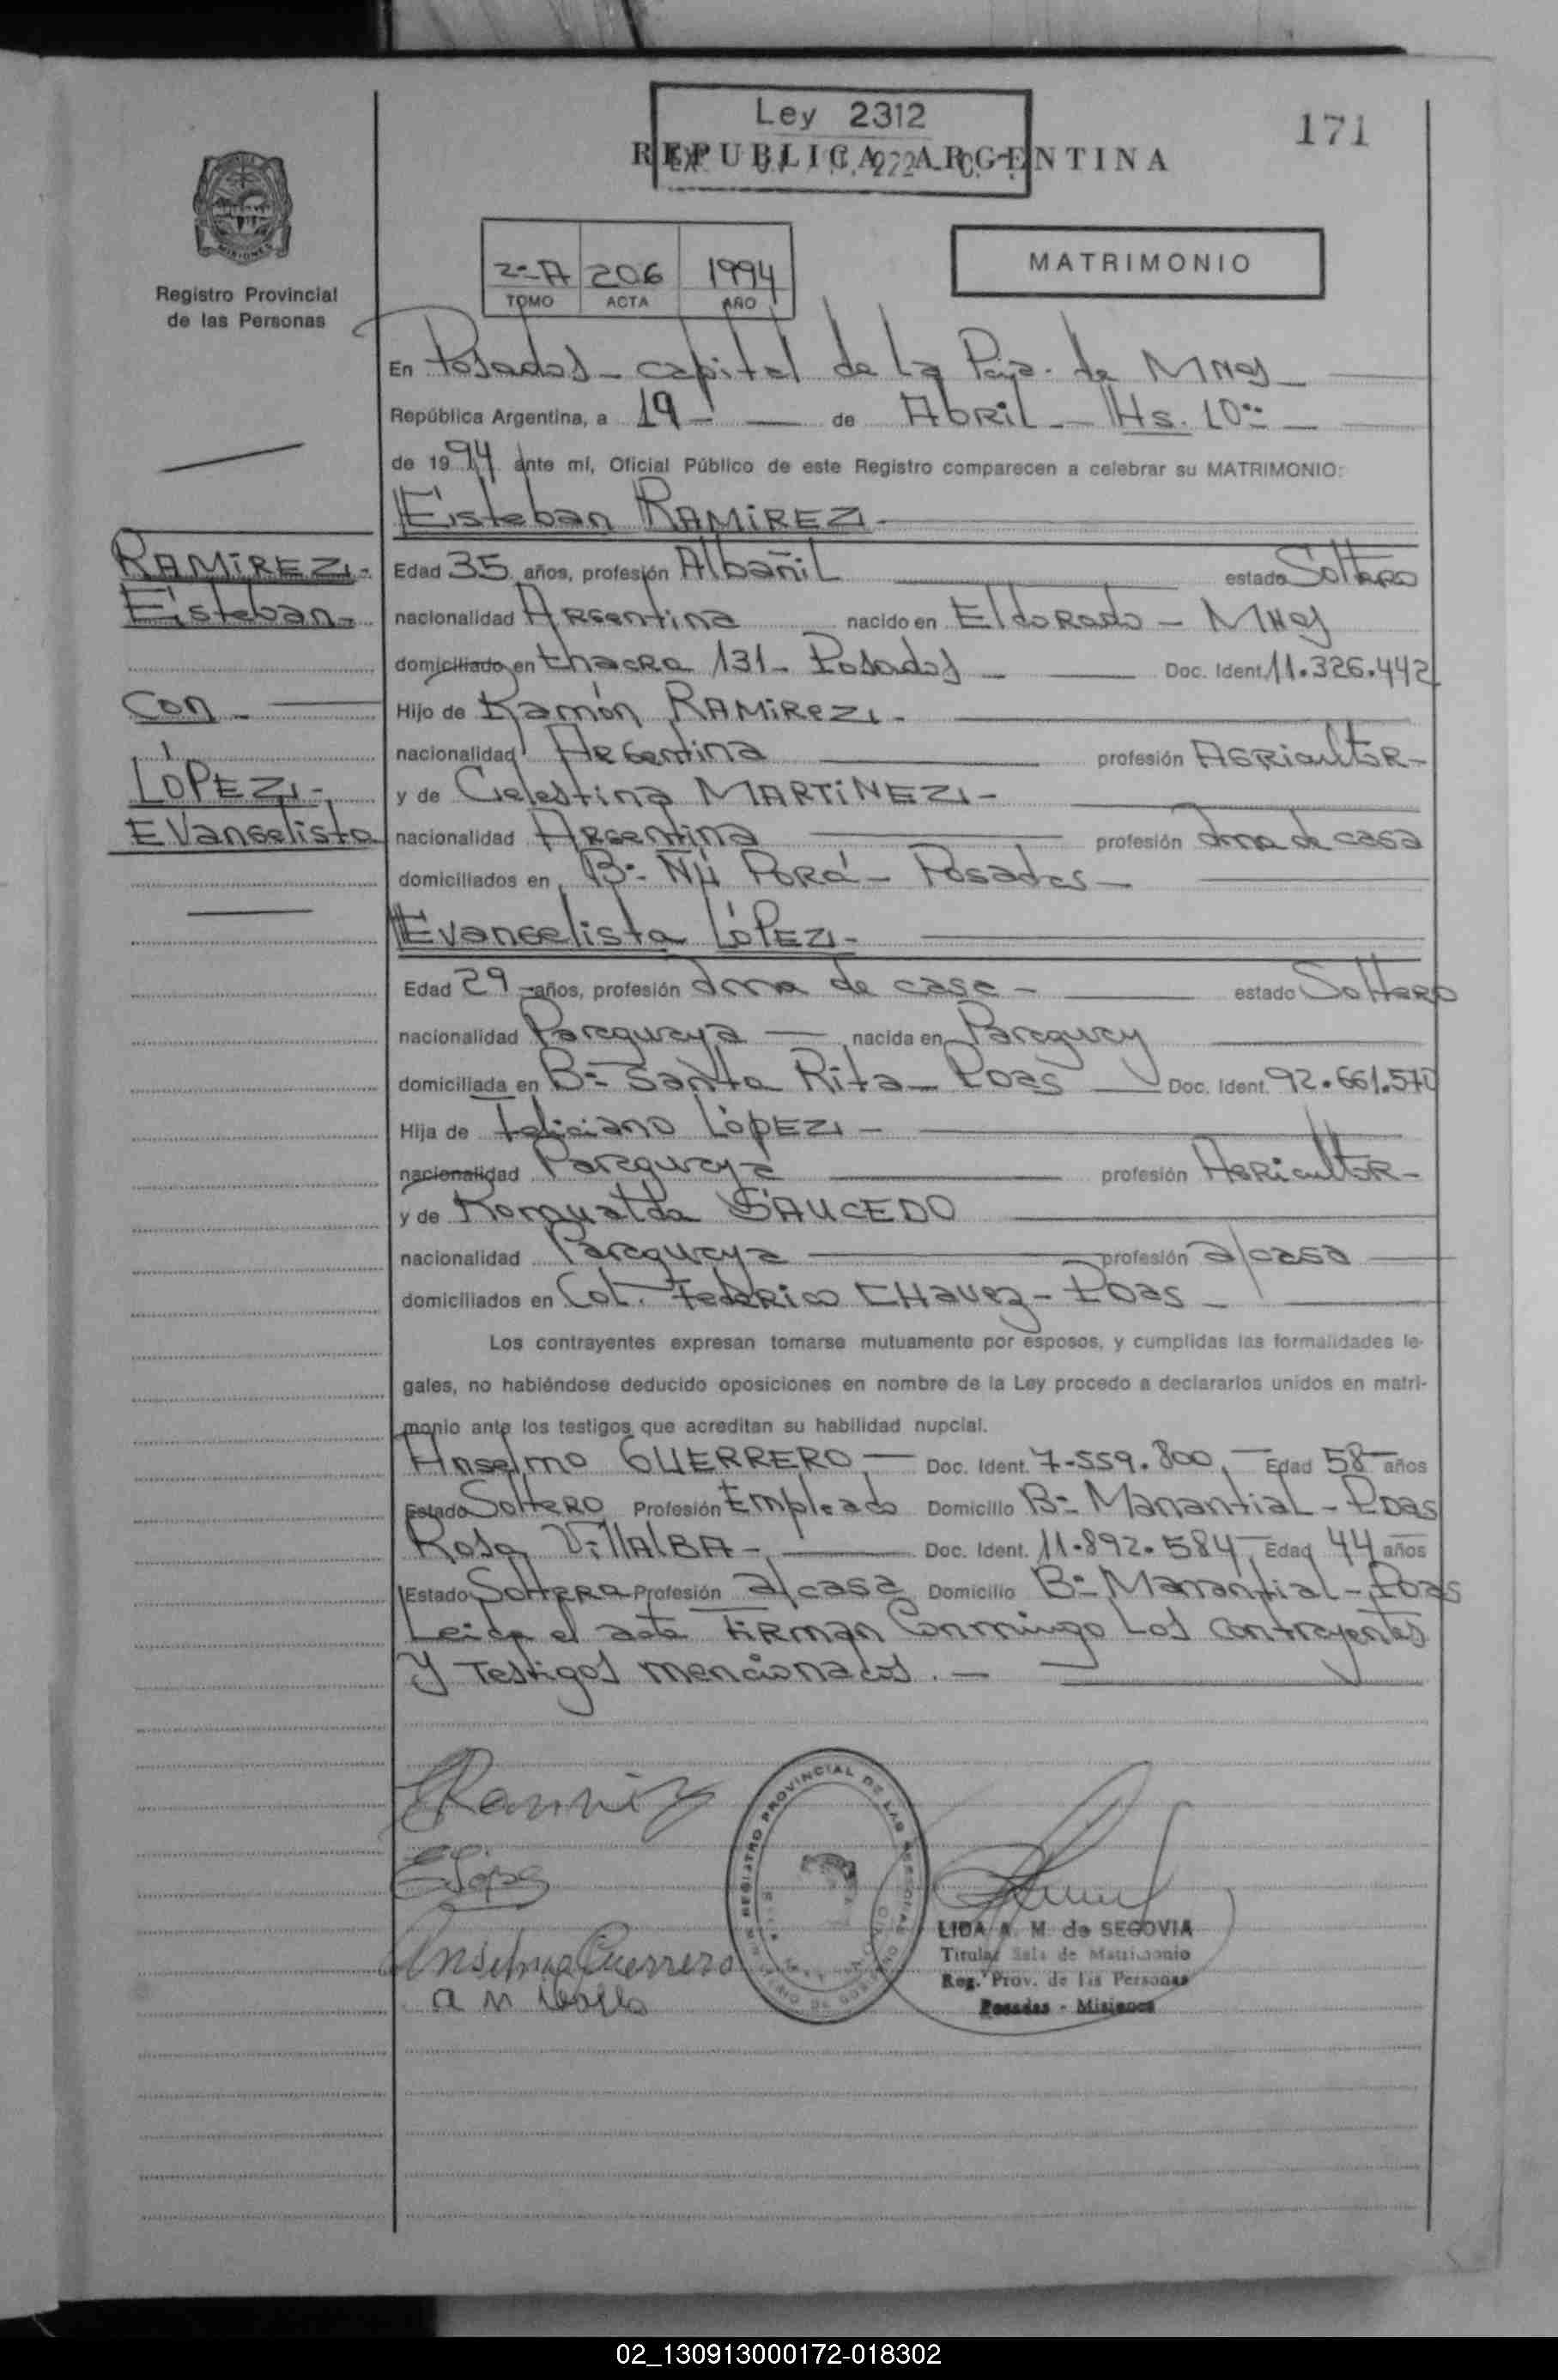 Ley 2312
171
REPUBLICA ARGENTINA
2º-A 206 1994
TOMO ACTA AÑO
MATRIMONIO
MISIONES
Registro Provincial
de las Personas
En Posadas - capital de la Pcia. de Mnes -
República Argentina, a 19 - de Abril - Hs. 10:00 -
de 1994 ante mí, Oficial Público de este Registro comparecen a celebrar su MATRIMONIO:
Esteban RAMIREZ -
RAMIREZ -
Esteban -
Con -
LÓPEZ -
Evangelista
Edad 35 años, profesión Albañil estado Soltero
nacionalidad Argentina nacido en Eldorado - Mnes
domiciliado en Chacra 131 - Posadas - Doc. Ident. 11.326.442
Hijo de Ramón RAMIREZ -
nacionalidad Argentina profesión Agricultor -
y de Celestina MARTINEZ -
nacionalidad Argentina profesión ama de casa
domiciliados en Bº Ñú Porá - Posadas -
Evangelista LÓPEZ -
Edad 29 - años, profesión ama de casa - estado Soltero
nacionalidad Paraguaya - nacida en Paraguay
domiciliada en Bº Santa Rita - Pdas Doc. Ident. 92.661.570
Hija de Feliciano LÓPEZ -
nacionalidad Paraguaya profesión Agricultor -
y de Romualda SAUCEDO
nacionalidad Paraguaya profesión a/casa
domiciliados en Col. Federico Chavez - Pdas -
Los contrayentes expresan tomarse mutuamente por esposos, y cumplidas las formalidades le-
gales, no habiéndose deducido oposiciones en nombre de la Ley procedo a declararlos unidos en matri-
monio ante los testigos que acreditan su habilidad nupcial.
Anselmo GUERRERO - Doc. Ident. 7.559.800 - Edad 58 años
Estado Soltero Profesión Empleado Domicilio Bº Manantial - Pdas
Rosa VillALBA - Doc. Ident. 11.892.584 - Edad 44 años
Estado Soltera Profesión a/casa Domicilio Bº Manantial - Pdas
Leida el acta Firman Conmigo Los contrayentes
y Testigos mencionados. -
ELópez
Anselmo Guerrero
REGISTRO PROVINCIAL DE LAS PERSONAS
LIDA A. M. de SEGOVIA
Titular Sala de Matrimonio
Reg. Prov. de las Personas
Posadas - Misiones
02_130913000172-018302